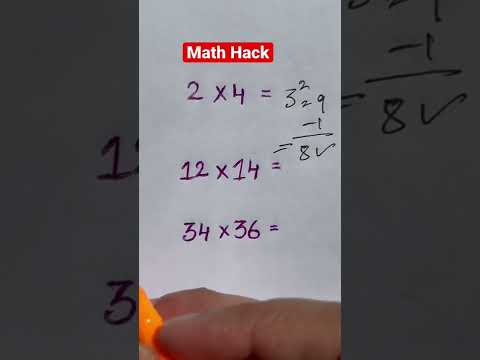 Math Hack
2 × 4 = 3² = 9
-1
= 8 ✓
12 × 14 =
34 × 36 =